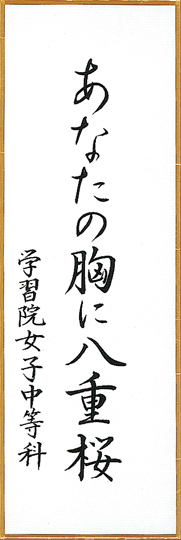 あなたの胸に八重桜
学習院女子中等科